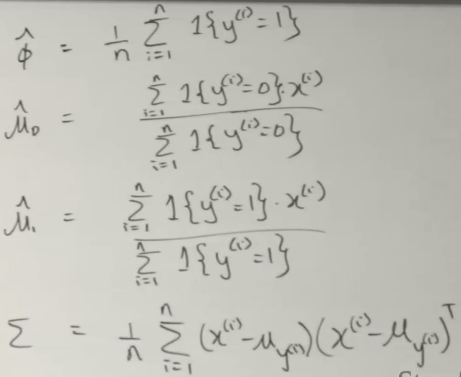 φ̂ = 1/n Σ_{i=1}^{n} 1{y^{(i)}=1}
μ̂₀ = Σ_{i=1}^{n} 1{y^{(i)}=0}·x^{(i)} / Σ_{i=1}^{n} 1{y^{(i)}=0}
μ̂₁ = Σ_{i=1}^{n} 1{y^{(i)}=1}·x^{(i)} / Σ_{i=1}^{n} 1{y^{(i)}=1}
Σ = 1/n Σ_{i=1}^{n} (x^{(i)}-μ_{y^{(i)}})(x^{(i)}-μ_{y^{(i)}})^T